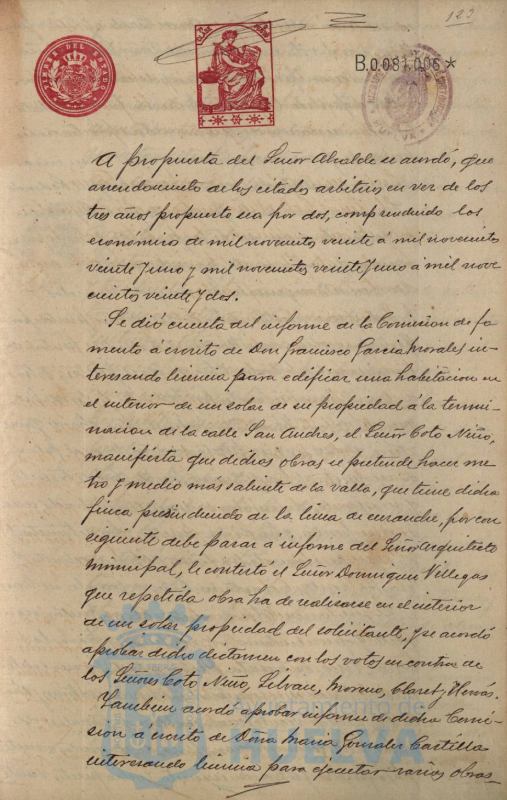 123
TIMBRE DEL ESTADO
B.0.081.006 *
HUELVA
A propuesta del Señor Alcalde se acordó, que
arrendamiento de los citados arbitrios en vez de los
tres años propuesto sea por dos, comprendiendo los
económicos de mil novecientos veinte á mil novecientos
veinte y uno y mil novecientos veinte y uno á mil nove
cientos veinte y dos.
Se dió cuenta del informe de la Comision de fo
mento á escrito de Don Francisco Garcia Morales in-
teresando licencia para edificar una habitacion en
el interior de un solar de su propiedad á la termi-
nacion de la calle San Andres, el Señor Coto Niño,
manifiesta que dichas obras se pretende hacer me
tro y medio más saliente de la valla, que tiene dicha
finca prescindiendo de la linea de ensanche, por con
siguiente debe pasar á informe del Señor Arquitecto
municipal, le contestó el Señor Dominguez Villegas
que repetida obra ha de realizarse en el interior
de un solar propiedad del solicitante, y se acordó
aprobar dicho dictamen con los votos en contra de
los Señores Coto Niño, Moreno, Claret y
Tambien acordó aprobar informe de dicha Comi-
sion á escrito de Doña Maria Gonzalez Castilla
interesando licencia para ejecutar varias obras
Ayuntamiento de
HUELVA